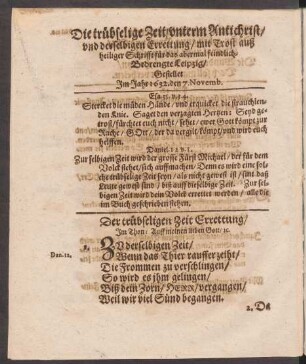 Die trübselige Zeit/vnterm Antichrist/
vnd derselbigen Errettung/mit Trost auß
heiliger Schrifft für das abermal feindlich-
Bedrengte Leipzig/
Gestellet
Im Jahr 1632. den 7. Novemb.
Esa. 35. v. 3. 4.
Stercket die müden Hände/vnd erquicket die strauchlen-
den Knie. Saget den verzagten Hertzen: Seyd ge-
trost/fürchtet euch nicht/sehet/ewer Gott kömpt zur
Rache/GOtt/der da vergilt kömpt/vnd wird euch
helffen.
Daniel. 12. v. 1.
Zur selbigen Zeit wird der grosse Fürst Michael/der für dein
Volck stehet/sich auffmachen/Denn es wird eine sol-
che trübselige Zeit seyn/als nicht gewest ist/sint daß
Leute gewest sind/biß auff dieselbige Zeit. Zur sel-
bigen Zeit wird dein Volck errettet werden/alle die
im Buch geschrieben stehen.
Der trübseligen Zeit Errettung/
Im Thon: Ach lieben Gott/ꝛc.
Dan. 12.
ZVderselbigen Zeit/
Wenn das Thier rauffer zeiht/
Die Frommen zu verschlingen/
So wird es ihn gelingen/
Biß dein Zorn/HERR/vergangen/
Weil wir viel Sünd begangen.
2. Da